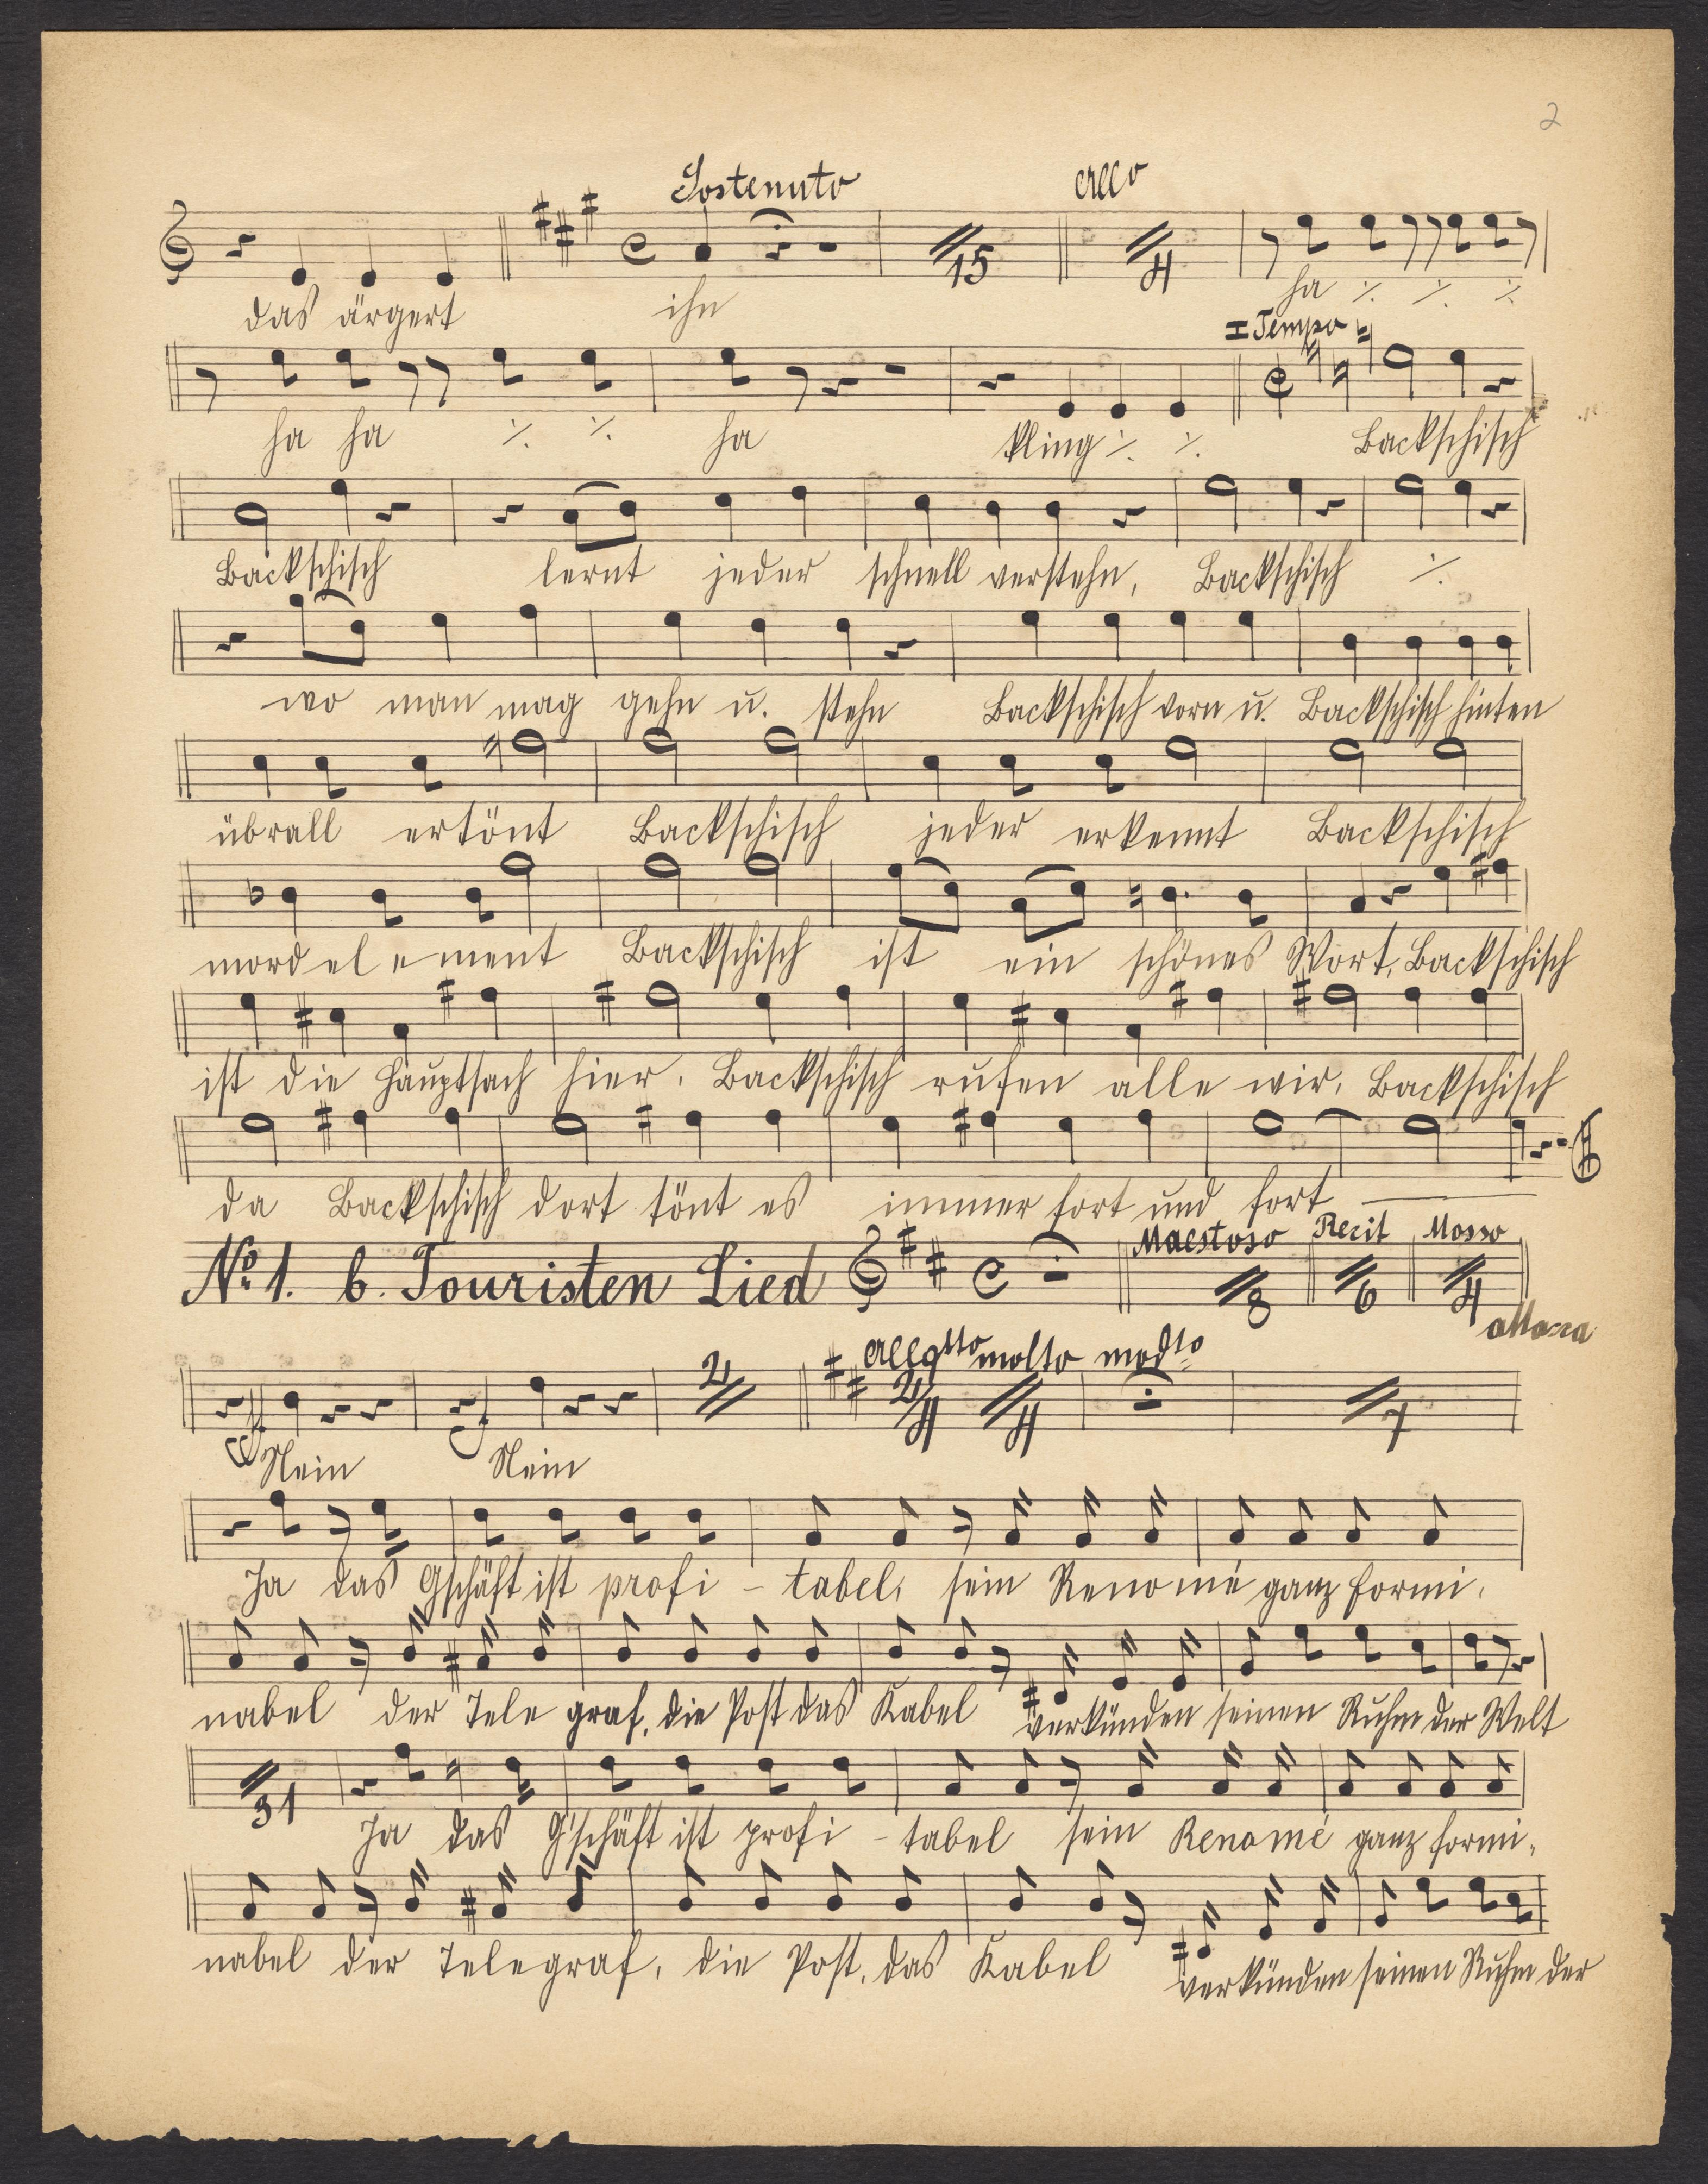 2
Sostenuto Allo
15 4
das ärgert ihn ha ⁒ ⁒ ⁒
I Tempo
ha ha ⁒ ⁒ ha kling ⁒ ⁒ Backschisch
Backschisch lernt jeder schnell verstehn, Backschisch ⁒
wo man mag gehn u. stehn Backschisch vorn u. Backschisch hinten
übrall ertönt Backschisch jeder erkennt Backschisch
mordelement Backschisch ist ein schönes Wort, Backschisch
ist die Hauptsach hier, Backschisch rufen alle wir, Backschisch
da Backschisch dort tönt es immer fort und fort
No 1. b. Touristen Lied Maestoso 8 Recit 6 Mosso 4
attacca
2 Allegtto molto modto
2/4 4 7
Nein Nein
Ja das Gschäft ist profi - tabel, sein Renomé ganz formi,
nabel der Tele graf, die Post das Kabel verkünden seinen Ruhm der Welt
31
Ja das G'schäft ist profi - tabel sein Renomé ganz formi,
nabel der Telegraf, die Post, das Kabel verkünden seinen Ruhm der